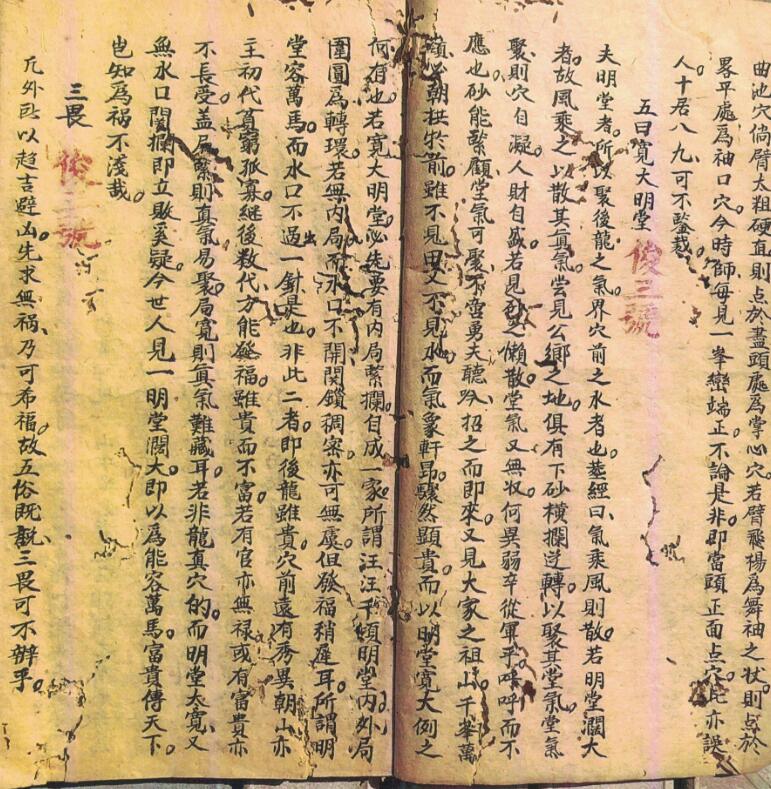 曲池穴倘臂太粗硬直則点於盡頭處爲掌心穴若臂飛揚爲舞袖之状則点於
畧平處爲袖口穴今時師每見一峯巒端正不論是非即當頭正面点穴此亦誤
人十居八九可不鑒哉
五曰寬大明堂
俊三號
夫明堂者所以聚後龍之氣界穴前之水者也葬經曰氣乘風則散若明堂濶大
者故風乘之以散其眞氣尝見公鄉之地俱有下砂横攔逆轉以聚其堂氣堂氣
聚則穴自凝人財自盛若見砂之懒散堂氣又無收何異弱卒從軍乎呼呼而不
應也砂能緊顧堂氣可聚不啻勇夫聽吟招之而即來又見大家之祖山千峯萬
嶺必朝拱於前雖不見田又不見水而氣象軒昂驟然顕贵而以明堂寬大例之
何有也若寬大明堂必先要有内局緊攔自成一家所謂汪汪千頃明堂内外局
團圓爲轉環若無内局而水口不開関鎖稠密亦可無虞但發福稍遲耳所謂明
堂容萬馬而水口不過一針是也非此二者即後龍雖貴穴前還有秀異朝山亦
主初代貧窮孤寡継後数代方能發福雖貴而不富若有官亦無禄或有富貴亦
不長受盖局緊則真氣易聚局寬則眞氣難藏耳若非龍真穴的而明堂太寬又
無水口関攔即立敗奚疑今世人見一明堂濶大即以爲能容萬馬富貴傳天下
豈知爲禍不淺哉
三畏
俊三號
凢外所以趋吉避凶先求無禍乃可希福故五俗既説三畏可不辨乎